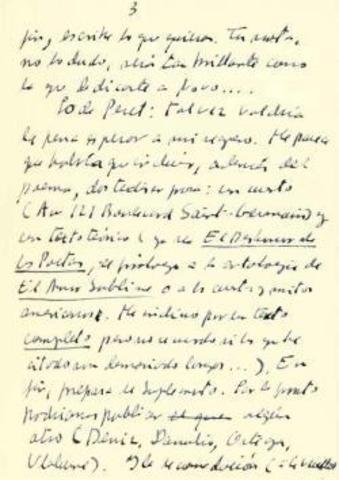 3
fin, escribe lo que quieras. Tu nota,
no lo dudo, será tan brillante como
la que dedicaste a Novo....
Lo de Péret: tal vez valdría
la pena esperar a mi regreso. Me parece
que habría que incluir, además del
poema, dos textos en prosa: un cuento
(Au 121 Boulevard Saint-Germain) y
un texto teórico (ya sea El Deshonor de
los Poetas, el prólogo a la antología de
El Amor Sublime o a los cuentos y mitos
americanos. Me inclino por un texto
completo pero no recuerdo si los que he
citado son demasiado largos...). En
fin, prepara el suplemento. Por lo pronto
podríamos publicar algún
otro (Deniz, Danubio, Ortega,
). de